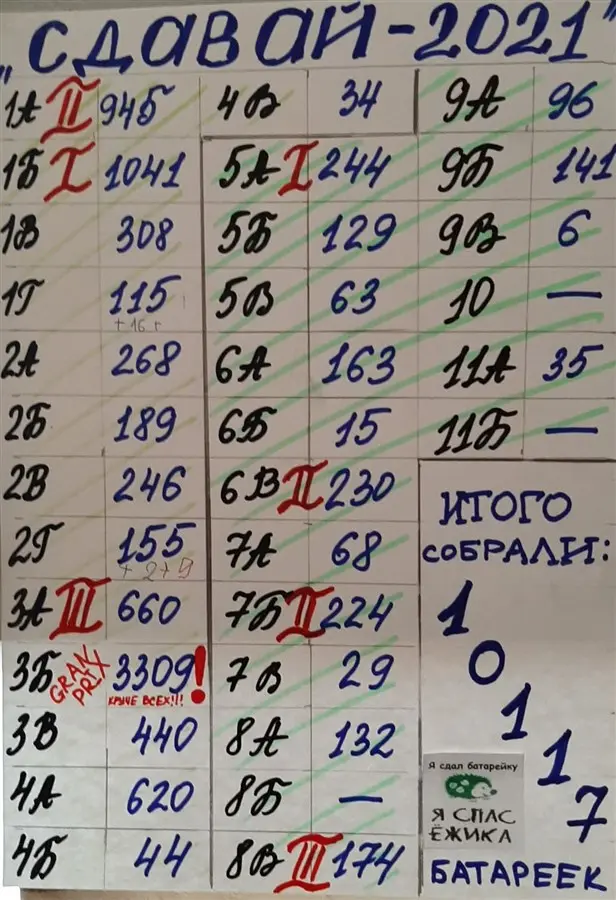 "СДАВАЙ-2021"
1А II 945
1Б I 1041
1В 308
1Г 115
+16+
2А 268
2Б 189
2В 246
2Г 155
+2+9
3А III 660
3Б GRAN PRIX 3309!
КРУЧЕ ВСЕХ!!!
3В 440
4А 620
4Б 44
4В 34
5А I 244
5Б 129
5В 63
6А 163
6Б 15
6В II 230
7А 68
7Б II 224
7В 29
8А 132
8Б —
8В III 174
9А 96
9Б 141
9В 6
10 —
11А 35
11Б —
ИТОГО
СОБРАЛИ:
10117
Я сдал батарейку
Я СПАС
ЁЖИКА
БАТАРЕЕК